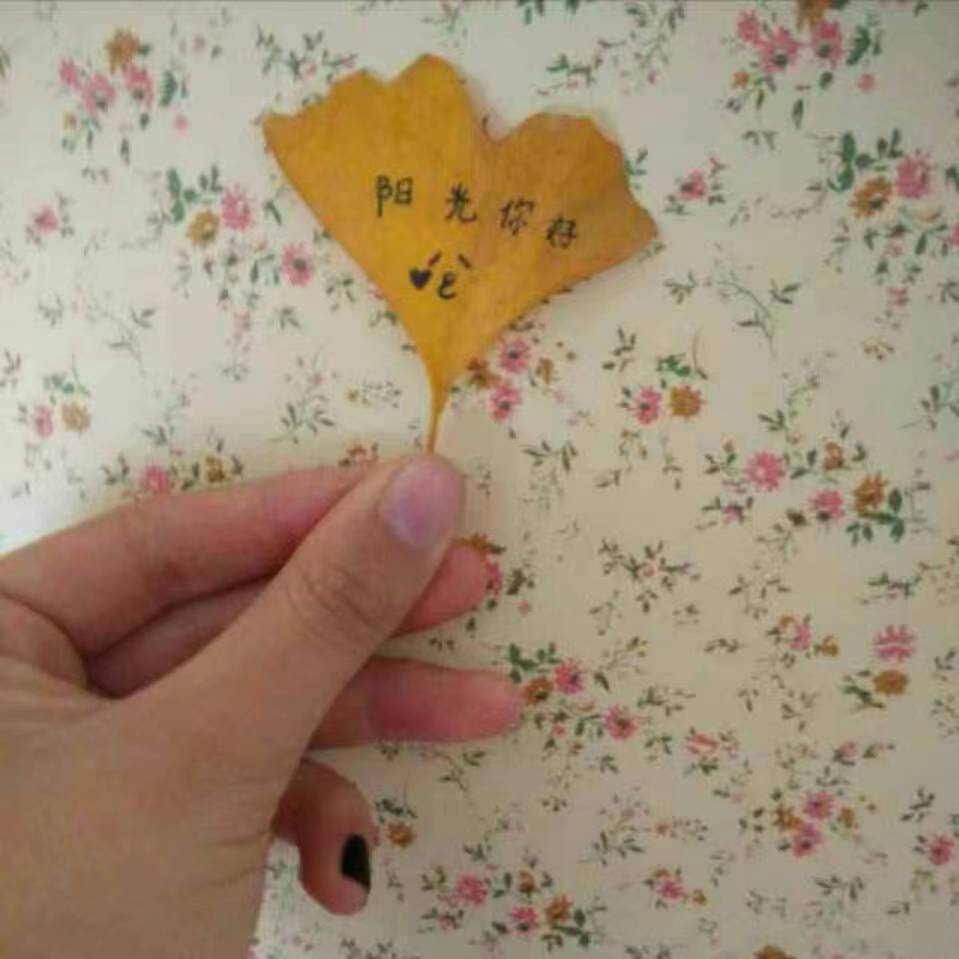 阳光你好